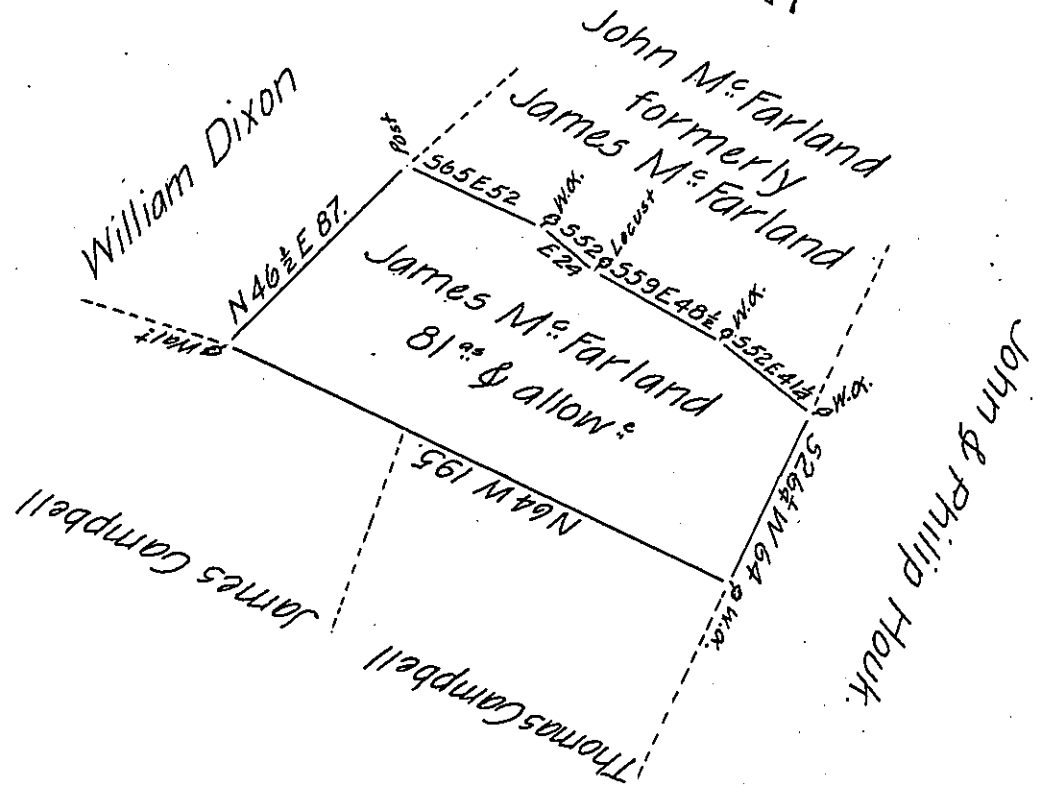 John McFarland
formerly
James McFarland
William Dixon
Post
S65E52
W.O.
S52
E29
Locust
S59E48½
W.O.
S52E41¼
W.O.
N46½E 87.
Walt
James McFarland
81 as & allowe
N64W 195.
S26¼W64
W.O.
John & Philip Houk.
James Campbell
Thomas Campbell